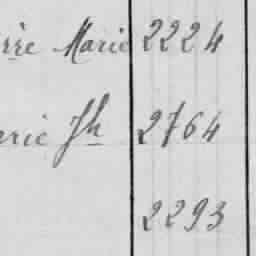 ère Marie 2224
arie Jh 2764
2293